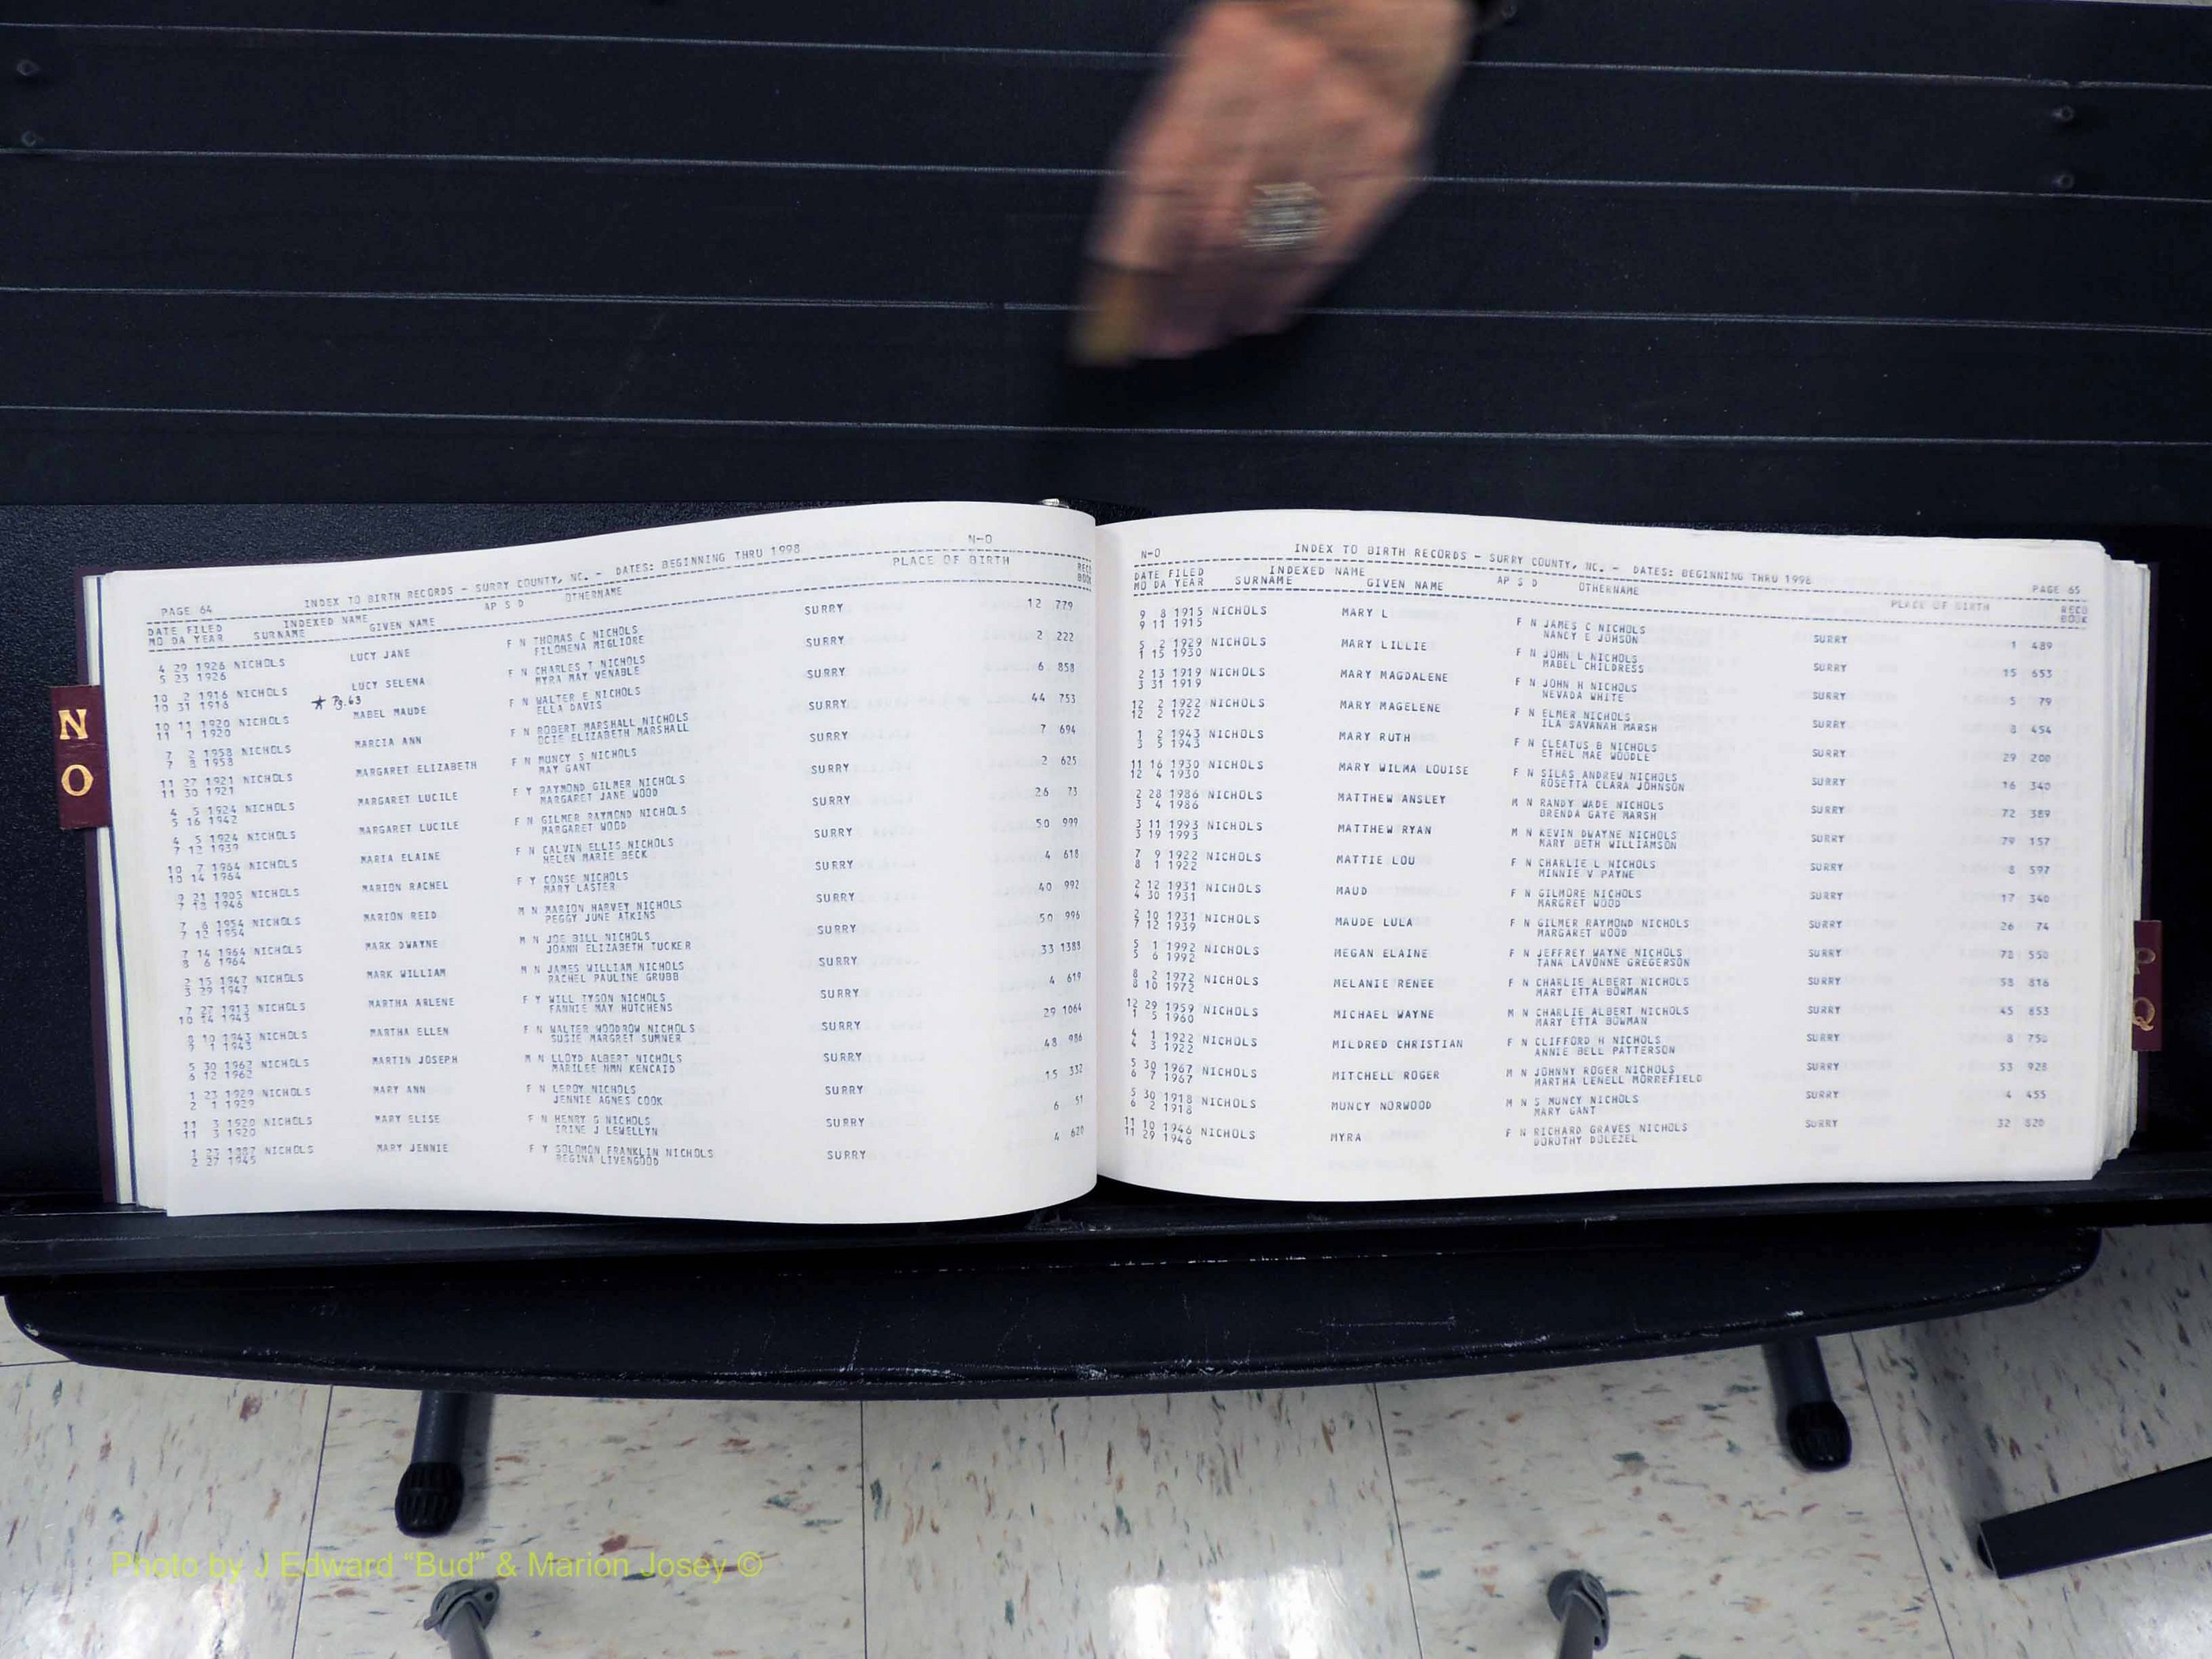 N-O
PAGE 64 INDEX TO BIRTH RECORDS - SURRY COUNTY, NC. - DATES: BEGINNING THRU 1998
DATE FILED INDEXED NAME AP S D OTHERNAME PLACE OF BIRTH RECD
MO DA YEAR SURNAME GIVEN NAME BOOK
4 29 1926 NICHOLS LUCY JANE F N THOMAS C NICHOLS SURRY 12 779
5 23 1926 FILOMENA MIGLIORE
10 2 1916 NICHOLS LUCY SELENA F N CHARLES T NICHOLS SURRY 2 222
10 31 1916 MYRA MAY VENABLE
★ Pg. 63
10 11 1920 NICHOLS MABEL MAUDE F N WALTER E NICHOLS SURRY 6 858
11 1 1920 ELLA DAVIS
7 2 1958 NICHOLS MARCIA ANN F N ROBERT MARSHALL NICHOLS SURRY 44 753
7 8 1958 OCIE ELIZABETH MARSHALL
11 27 1921 NICHOLS MARGARET ELIZABETH F N MUNCY S NICHOLS SURRY 7 694
11 30 1921 MAY GANT
4 5 1924 NICHOLS MARGARET LUCILE F Y RAYMOND GILMER NICHOLS SURRY 2 625
5 16 1942 MARGARET JANE WOOD
4 5 1924 NICHOLS MARGARET LUCILE F N GILMER RAYMOND NICHOLS SURRY 26 73
7 12 1939 MARGARET WOOD
10 7 1964 NICHOLS MARIA ELAINE F N CALVIN ELLIS NICHOLS SURRY 50 999
10 14 1964 HELEN MARIE BECK
9 21 1905 NICHOLS MARION RACHEL F Y CONSE NICHOLS SURRY 4 618
7 18 1946 MARY LASTER
7 6 1954 NICHOLS MARION REID M N MARION HARVEY NICHOLS SURRY 40 992
7 12 1954 PEGGY JUNE ATKINS
7 14 1964 NICHOLS MARK DWAYNE M N JOE BILL NICHOLS SURRY 50 996
8 6 1964 JOANN ELIZABETH TUCKER
2 15 1947 NICHOLS MARK WILLIAM M N JAMES WILLIAM NICHOLS SURRY 33 1388
3 29 1947 RACHEL PAULINE GRUBB
7 27 1913 NICHOLS MARTHA ARLENE F Y WILL TYSON NICHOLS SURRY 4 619
10 14 1943 FANNIE MAY HUTCHENS
8 10 1943 NICHOLS MARTHA ELLEN F N WALTER WOODROW NICHOLS SURRY 29 1064
9 1 1943 SUSIE MARGRET SUMNER
5 30 1962 NICHOLS MARTIN JOSEPH M N LLOYD ALBERT NICHOLS SURRY 48 986
6 12 1962 MARILEE NMN KENCAID
1 23 1929 NICHOLS MARY ANN F N LEROY NICHOLS SURRY 15 332
2 1 1929 JENNIE AGNES COOK
11 3 1920 NICHOLS MARY ELISE F N HENRY G NICHOLS SURRY 6 51
11 3 1920 IRINE J LEWELLYN
1 23 1887 NICHOLS MARY JENNIE F Y SOLOMON FRANKLIN NICHOLS SURRY 4 620
2 27 1945 REGINA LIVENGOOD
N-O INDEX TO BIRTH RECORDS - SURRY COUNTY, NC. - DATES: BEGINNING THRU 1998 PAGE 65
DATE FILED INDEXED NAME AP S D OTHERNAME PLACE OF BIRTH RECD
MO DA YEAR SURNAME GIVEN NAME BOOK
9 8 1915 NICHOLS MARY L F N JAMES C NICHOLS SURRY 1 489
9 11 1915 NANCY E JOHSON
5 2 1929 NICHOLS MARY LILLIE F N JOHN L NICHOLS SURRY 15 653
1 15 1930 MABEL CHILDRESS
2 13 1919 NICHOLS MARY MAGDALENE F N JOHN H NICHOLS SURRY 5 79
3 31 1919 NEVADA WHITE
12 2 1922 NICHOLS MARY MAGELENE F N ELMER NICHOLS SURRY 8 454
12 2 1922 ILA SAVANAH MARSH
1 2 1943 NICHOLS MARY RUTH F N CLEATUS B NICHOLS SURRY 29 200
3 5 1943 ETHEL MAE WOODLE
11 16 1930 NICHOLS MARY WILMA LOUISE F N SILAS ANDREW NICHOLS SURRY 16 340
12 4 1930 ROSETTA CLARA JOHNSON
2 28 1986 NICHOLS MATTHEW ANSLEY M N RANDY WADE NICHOLS SURRY 72 389
3 4 1986 BRENDA GAYE MARSH
3 11 1993 NICHOLS MATTHEW RYAN M N KEVIN DWAYNE NICHOLS SURRY 79 157
3 19 1993 MARY BETH WILLIAMSON
7 9 1922 NICHOLS MATTIE LOU F N CHARLIE L NICHOLS SURRY 8 597
8 1 1922 MINNIE V PAYNE
2 12 1931 NICHOLS MAUD F N GILMORE NICHOLS SURRY 17 340
4 30 1931 MARGRET WOOD
2 10 1931 NICHOLS MAUDE LULA F N GILMER RAYMOND NICHOLS SURRY 26 74
7 12 1939 MARGARET WOOD
5 1 1992 NICHOLS MEGAN ELAINE F N JEFFREY WAYNE NICHOLS SURRY 78 550
5 6 1992 TANA LAVONNE GREGERSON
8 2 1972 NICHOLS MELANIE RENEE F N CHARLIE ALBERT NICHOLS SURRY 58 816
8 10 1972 MARY ETTA BOWMAN
12 29 1959 NICHOLS MICHAEL WAYNE M N CHARLIE ALBERT NICHOLS SURRY 45 853
1 5 1960 MARY ETTA BOWMAN
4 1 1922 NICHOLS MILDRED CHRISTIAN F N CLIFFORD H NICHOLS SURRY 8
4 3 1922 ANNIE BELL PATTERSON
5 30 1967 NICHOLS MITCHELL ROGER M N JOHNNY ROGER NICHOLS SURRY 53 928
6 7 1967 MARTHA LENELL MORREFIELD
5 30 1918 NICHOLS MUNCY NORWOOD M N S MUNCY NICHOLS SURRY 4 455
6 2 1918 MARY GANT
11 10 1946 NICHOLS MYRA F N RICHARD GRAVES NICHOLS SURRY 32 820
11 29 1946 DOROTHY DOLEZEL
N
O
Q
Photo by J Edward “Bud” & Marion Josey ©